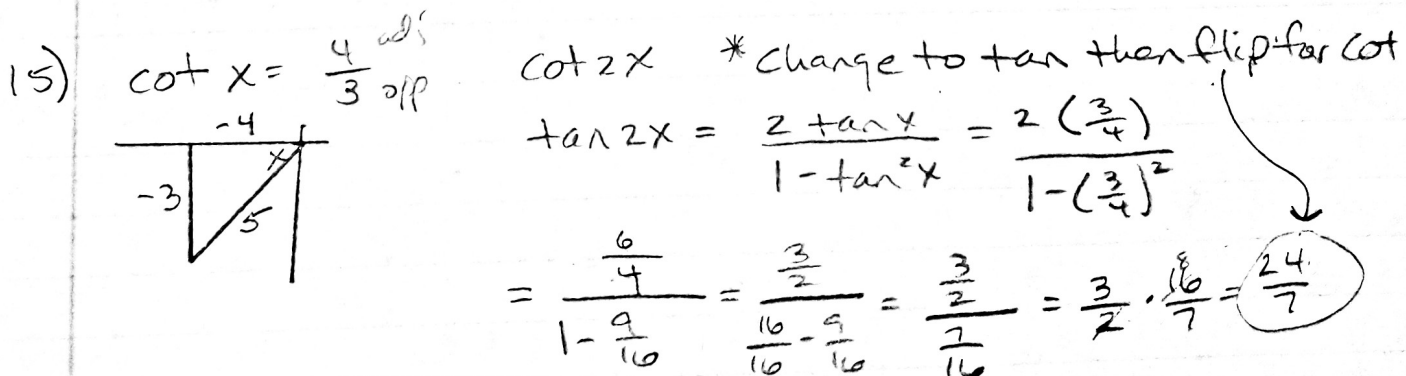 15) cot x = 4/3 adj opp
cot 2x * Change to tan then flip for cot
-4
x
-3
5
tan 2x = (2 tan x)/(1 - tan²x) = (2(3/4))/(1-(3/4)²)
= (6/4)/(1-9/16) = (3/2)/(16/16 - 9/16) = (3/2)/(7/16) = 3/2 · 16/7 = 24/7
8